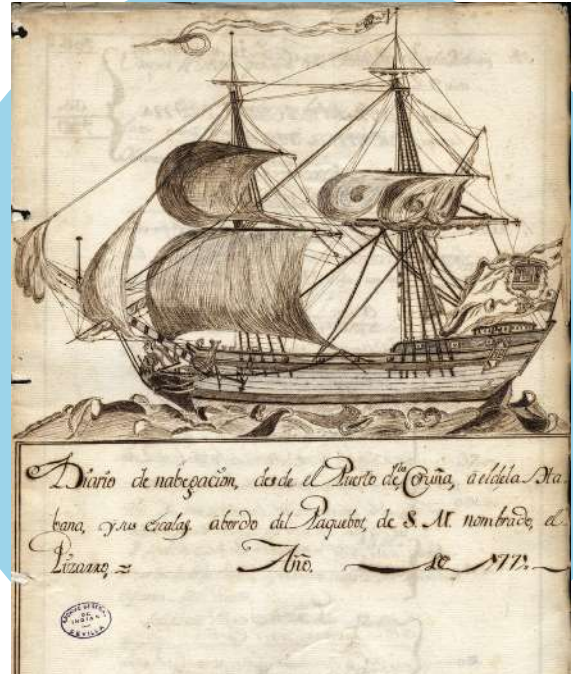 Diario de nabegacion, desde el Puerto de la Coruña, a el de la Ha-
bana, y sus escalas, abordo del Paquebot, de S. M. nombrado, el
Pizarro, = Año. de 177
ARCHIVO GENERAL
DE
INDIAS
SEVILLA